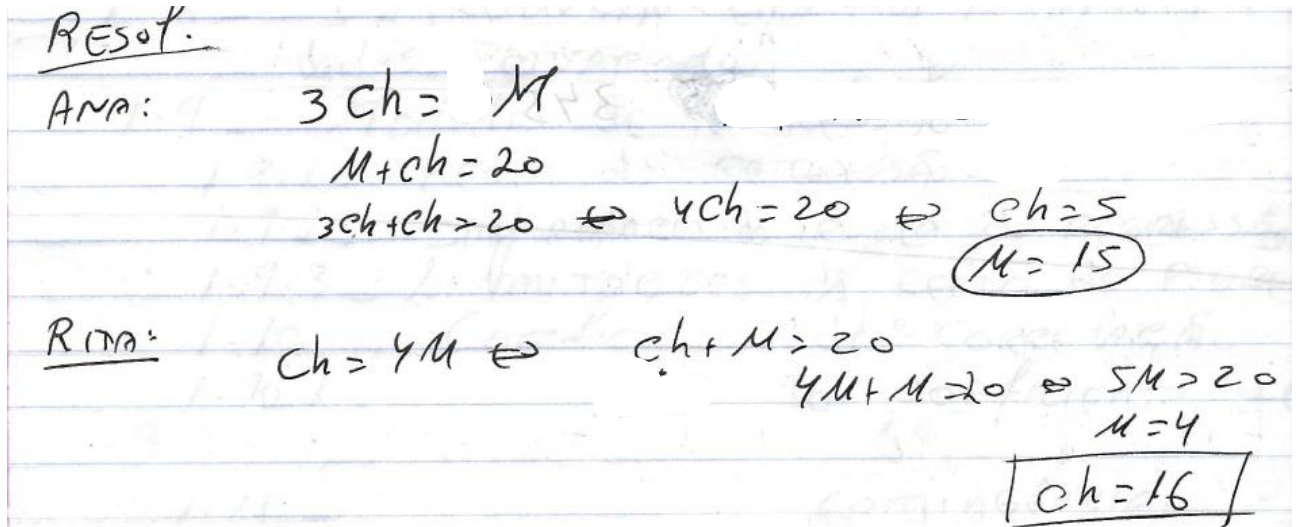 RESOL.
ANA: 3 Ch = M
M + ch = 20
3ch + ch = 20 ⇔ 4Ch = 20 ⇔ Ch = 5
M = 15
RITA: Ch = 4M ⇔ ch + M = 20
4M + M = 20 ⇔ 5M = 20
M = 4
ch = 16